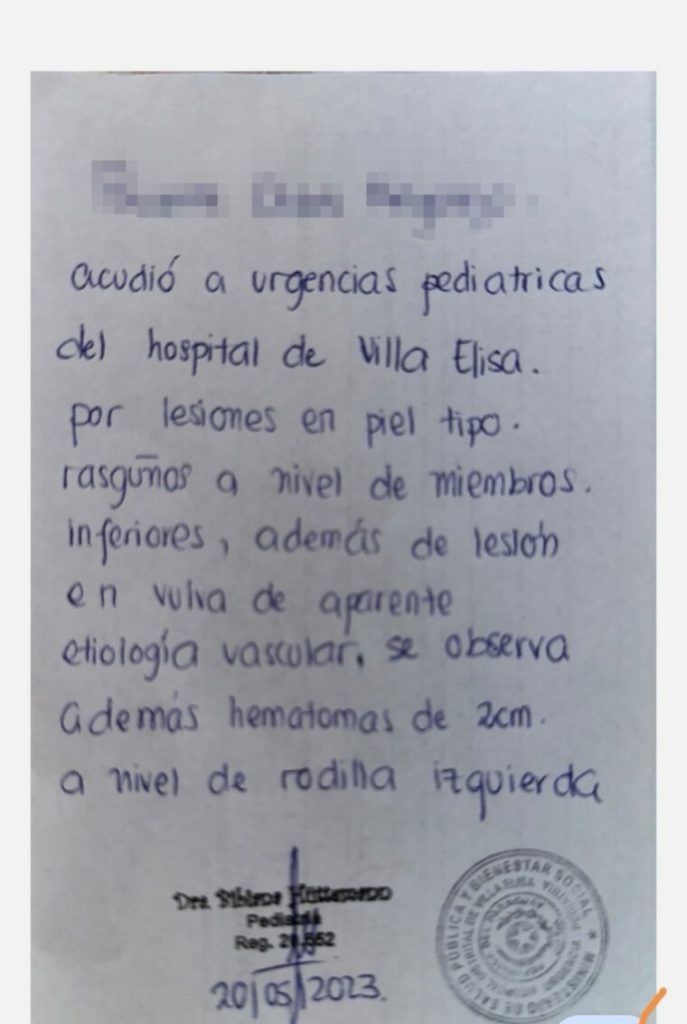 acudió a urgencias pediatricas
del hospital de Villa Elisa.
por lesiones en piel tipo.
rasguños a nivel de miembros.
inferiores, además de lesión
en vulva de aparente
etiología vascular, se observa
además hematomas de 2cm.
a nivel de rodilla izquierda
Dra.
Pediatra
Reg.
20/05/2023.
MINISTERIO DE SALUD PÚBLICA Y BIENESTAR SOCIAL